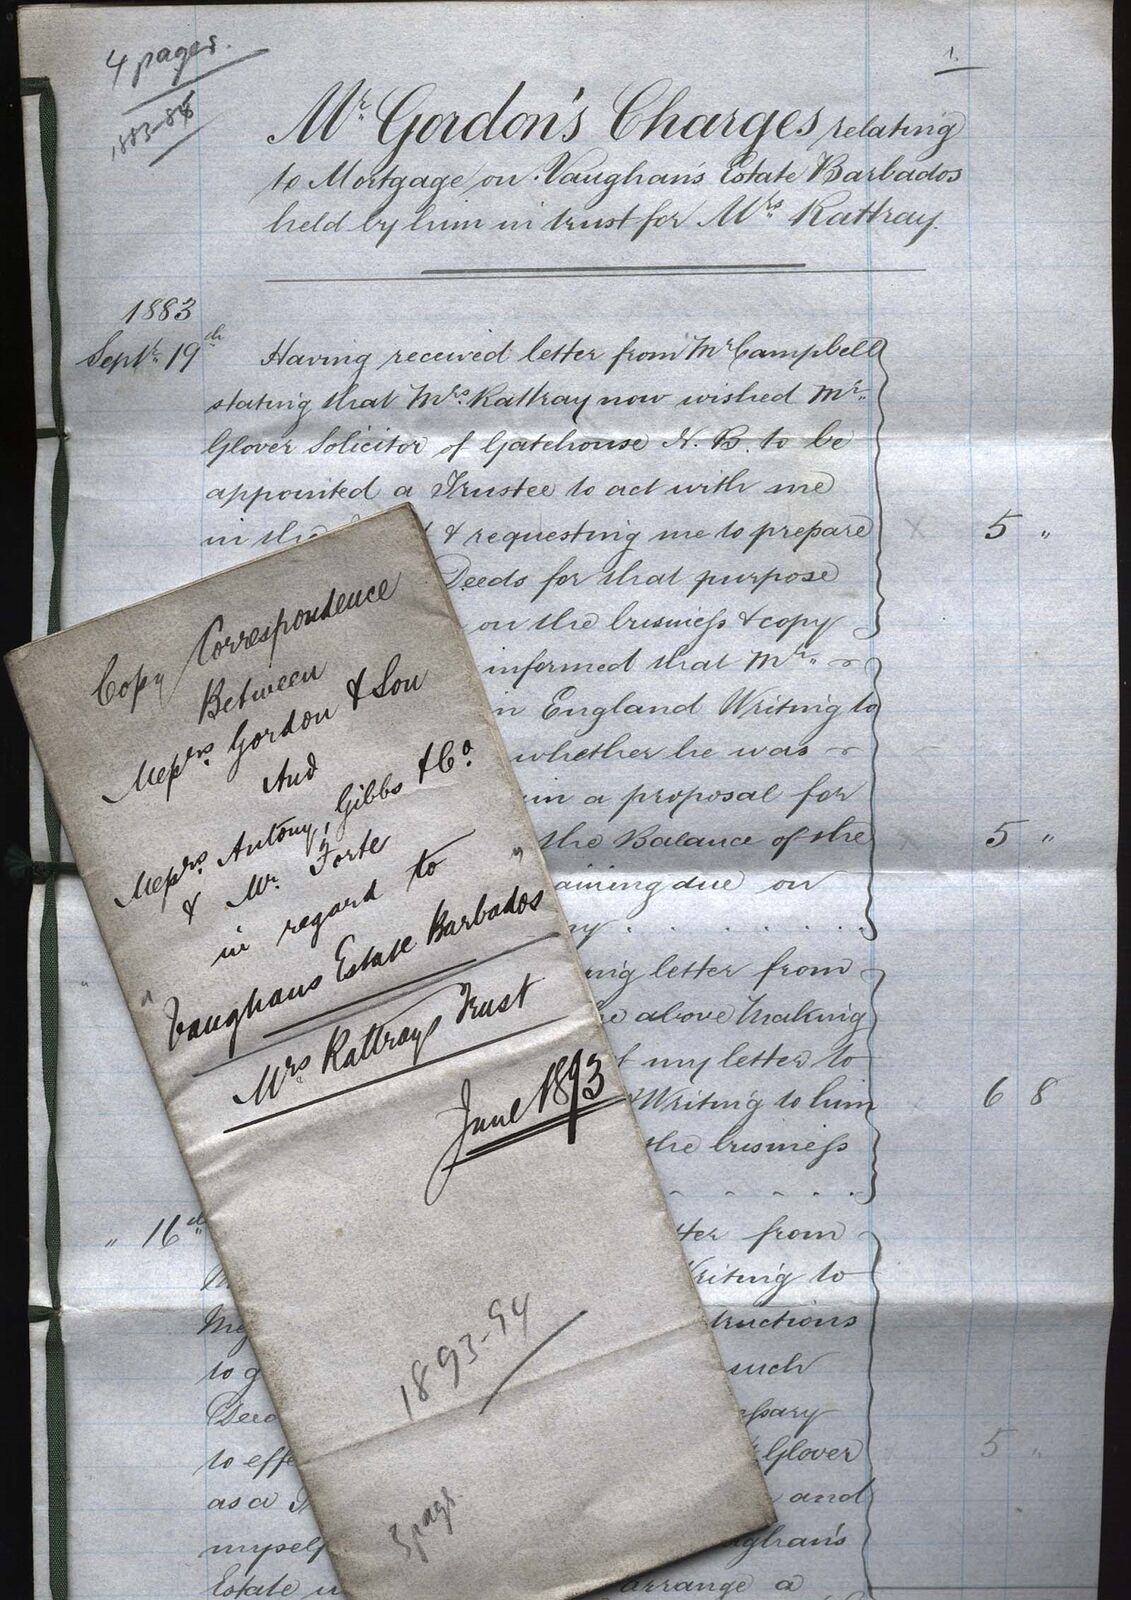 4 pages.
1883-85
1.
Mr. Gordon's Charges relating
to Mortgage on Vaughan's Estate Barbados
held by him in trust for Mrs. Rattray.
1883
Septr. 19th Having received letter from Mr Campbell
stating that Mrs. Rattray now wished Mr.
Glover Solicitor of Gatehouse N. B. to be
appointed a Trustee to act with me
in the & requesting me to prepare 5 "
Deeds for that purpose
on the business & copy
informed that Mr.
in England Writing to
whether he was
in a proposal for
the Balance of the 5 "
aining due on
ny . . . . . . .
ring letter from
he above Making
my letter to
& Writing to him 6 8
the business
" 16th tter from
Writing to
My tructions
to g such
Deed essary
to effe Glover 5 "
as a T and
myself ughan's
Estate arrange a
Copy Correspondence
Between
Messrs. Gordon & Son
And
Messrs. Antony, Gibbs & Co.
& Mr. Forte
in regard to
"Vaughans Estate Barbados"
Mrs Rattrays Trust
June 1893
1893-94
3 pags.